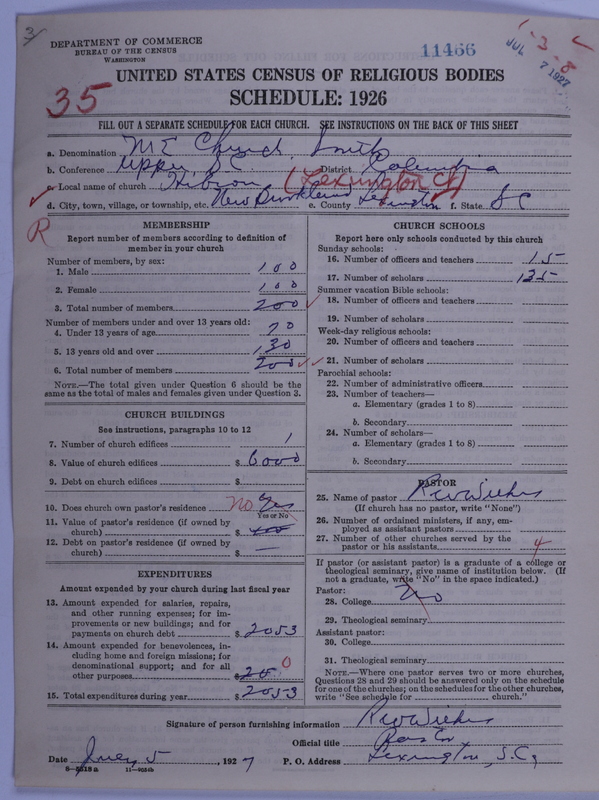 3
DEPARTMENT OF COMMERCE
BUREAU OF THE CENSUS
WASHINGTON
11466
1-3-8
JUL 7 1927
35
UNITED STATES CENSUS OF RELIGIOUS BODIES
SCHEDULE: 1926
FILL OUT A SEPARATE SCHEDULE FOR EACH CHURCH. SEE INSTRUCTIONS ON THE BACK OF THIS SHEET
a. Denomination M E Church, South
b. Conference Upper S. C. District Columbia
c. Local name of church Hebron (Lexington Ct)
d. City, town, village, or township, etc. New Brooklin e. County Lexington f. State S C
R
MEMBERSHIP
Report number of members according to definition of
member in your church
Number of members, by sex:
1. Male 100
2. Female 100
3. Total number of members 200
Number of members under and over 13 years old:
4. Under 13 years of age 70
5. 13 years old and over 130
6. Total number of members 200
NOTE.—The total given under Question 6 should be
same as the total of males and females given under Question 3.
CHURCH BUILDINGS
See instructions, paragraphs 10 to 12
7. Number of church edifices 1
8. Value of church edifices $ 6000
9. Debt on church edifices $
10. Does church own pastor's residence no Yes
Yes or No
11. Value of pastor's residence (if owned by
church) $
12. Debt on pastor's residence (if owned by
church) $ —
EXPENDITURES
Amount expended by your church during last fiscal year
13. Amount expended for salaries, repairs,
and other running expenses; for im-
provements or new buildings; and for
payments on church debt $ 2053
14. Amount expended for benevolences, in-
cluding home and foreign missions; for
denominational support; and for all
other purposes $ 0
15. Total expenditures during year $ 2053
CHURCH SCHOOLS
Report here only schools conducted by this church
Sunday schools:
16. Number of officers and teachers 15
17. Number of scholars 135
Summer vacation Bible schools:
18. Number of officers and teachers
19. Number of scholars
Week-day religious schools:
20. Number of officers and teachers
21. Number of scholars
Parochial schools:
22. Number of administrative officers
23. Number of teachers—
a. Elementary (grades 1 to 8)
b. Secondary
24. Number of scholars—
a. Elementary (grades 1 to 8)
b. Secondary
PASTOR
25. Name of pastor
(If church has no pastor, write "None")
26. Number of ordained ministers, if any, em-
ployed as assistant pastors
27. Number of other churches served by the
pastor or his assistants 4
If pastor (or assistant pastor) is a graduate of a college or
theological seminary, give name of institution below. (If
not a graduate, write "No" in the space indicated.)
Pastor:
28. College No
29. Theological seminary
Assistant pastor:
30. College
31. Theological seminary
NOTE.—Where one pastor serves two or more churches,
Questions 28 and 29 should be answered only on the schedule
for one of the churches; on the schedules for the other churches,
write "See schedule for church."
Signature of person furnishing information
Official title Pastor
Date July 5, 1927 P. O. Address Lexington, S.C.
8-5218a 11-9034b